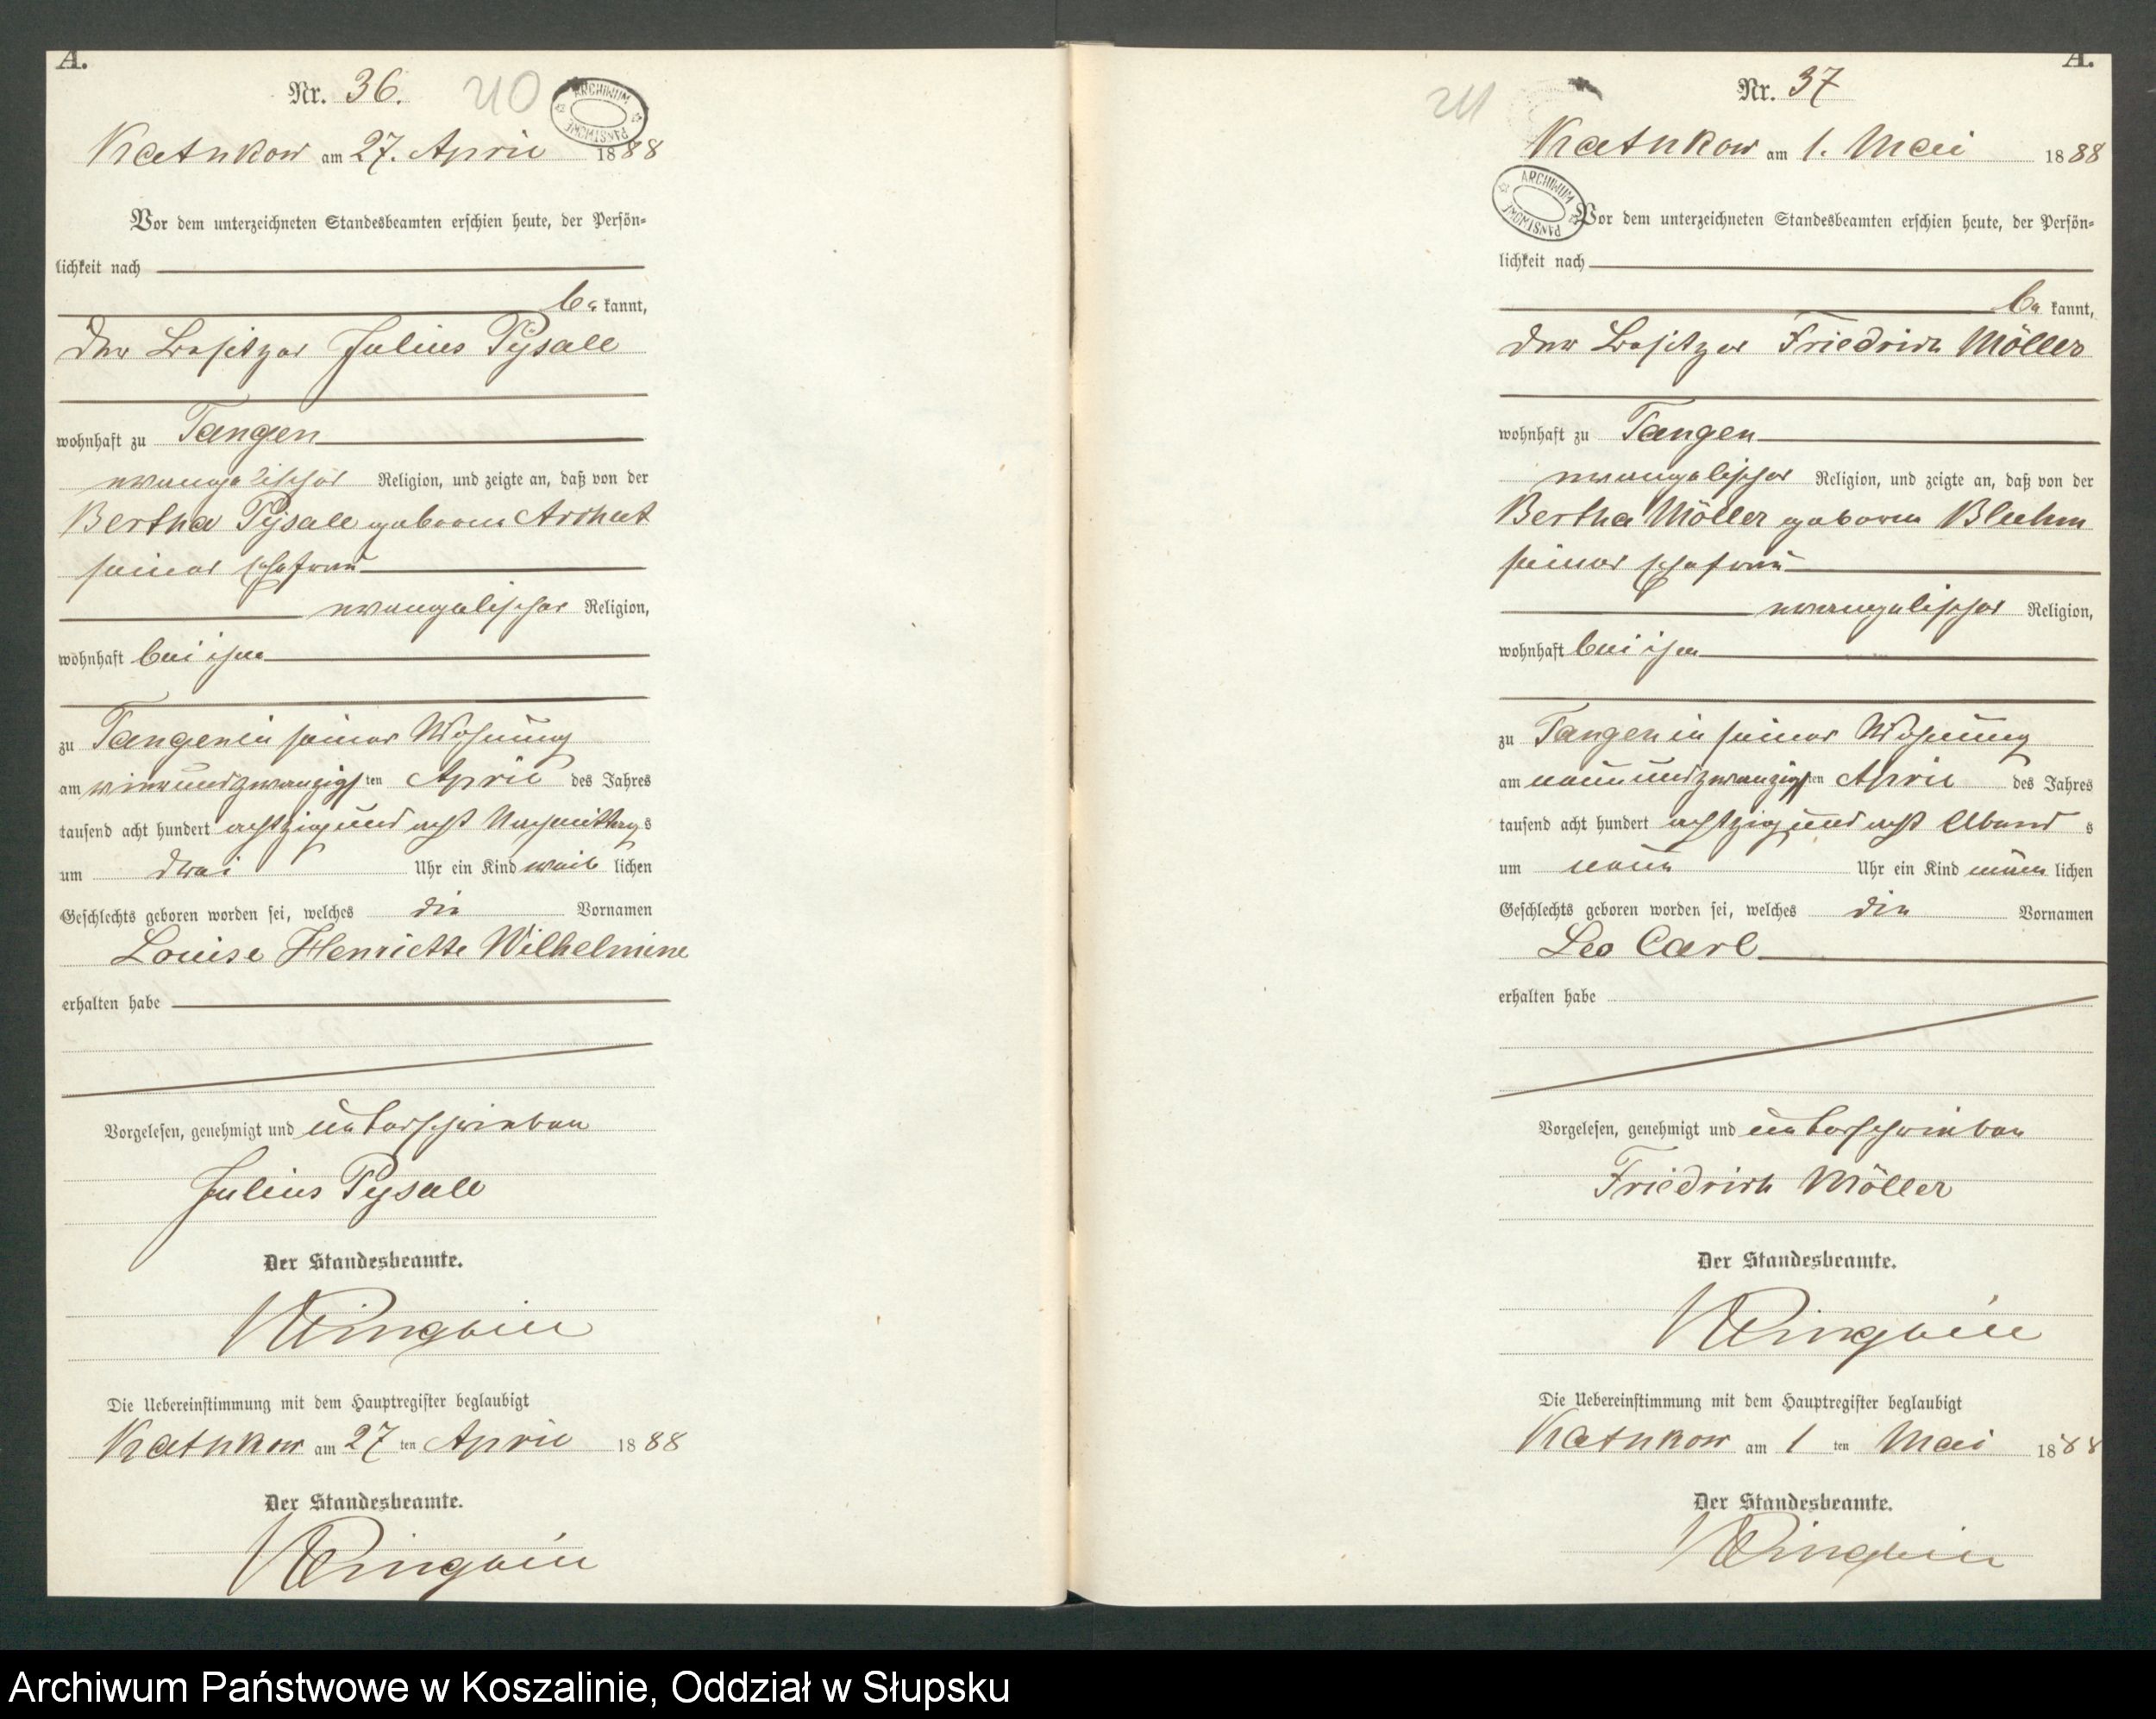 A.
Nr. 36.
40
ARCHIWUM PAŃSTWOWE
Katkow am 27. April 1888
Vor dem unterzeichneten Standesbeamten erschien heute, der Persön-
lichkeit nach
be kannt,
der Besitzer Julius Pysall
wohnhaft zu Tangen
evangelischer Religion, und zeigte an, daß von der
Bertha Pysall geborene
seiner Ehefrau
evangelischer Religion,
wohnhaft bei ihm
zu Tangen in seiner Wohnung
am vierundzwanzigsten April des Jahres
tausend acht hundert achtzig und acht Nachmittags
um drei Uhr ein Kind weib lichen
Geschlechts geboren worden sei, welches die Vornamen
Louise Henriette Wilhelmine
erhalten habe
Vorgelesen, genehmigt und unterschrieben
Julius Pysall
Der Standesbeamte.
Die Uebereinstimmung mit dem Hauptregister beglaubigt
Katkow am 27 ten April 1888
Der Standesbeamte.
A.
Nr. 37
41
ARCHIWUM PAŃSTWOWE
Katkow am 1. Mai 1888
Vor dem unterzeichneten Standesbeamten erschien heute, der Persön-
lichkeit nach
be kannt,
der Besitzer Friedrich Möller
wohnhaft zu Tangen
evangelischer Religion, und zeigte an, daß von der
Bertha Möller geborne Bluhm
seiner Ehefrau
evangelischer Religion,
wohnhaft bei ihm
zu Tangen in seiner Wohnung
am neunundzwanzigsten April des Jahres
tausend acht hundert achtzig und acht Abend s
um neun Uhr ein Kind männ lichen
Geschlechts geboren worden sei, welches die Vornamen
Leo Carl
erhalten habe
Vorgelesen, genehmigt und unterschrieben
Friedrich Möller
Der Standesbeamte.
Die Uebereinstimmung mit dem Hauptregister beglaubigt
Katkow am 1 ten Mai 1888
Der Standesbeamte.
Archiwum Państwowe w Koszalinie, Oddział w Słupsku